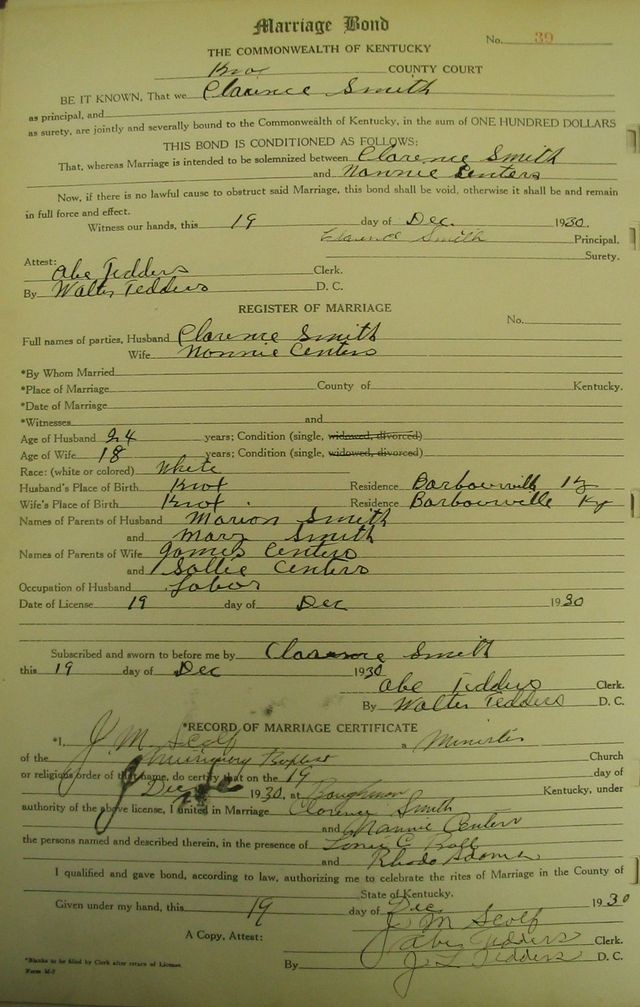 Marriage Bond
No. 39
THE COMMONWEALTH OF KENTUCKY
Knox COUNTY COURT
BE IT KNOWN, That we Clarence Smith
as principal, and
as surety, are jointly and severally bound to the Commonwealth of Kentucky, in the sum of ONE HUNDRED DOLLARS
THIS BOND IS CONDITIONED AS FOLLOWS:
That, whereas Marriage is intended to be solemnized between Clarence Smith
and Nannie Centers
Now, if there is no lawful cause to obstruct said Marriage, this bond shall be void, otherwise it shall be and remain
in full force and effect.
Witness our hands, this 19 day of Dec. 1930.
Clarence Smith Principal.
Surety.
Attest:
Abe Tedders Clerk.
By Walter Tedders D. C.
REGISTER OF MARRIAGE
No.
Full names of parties, Husband Clarence Smith
Wife Nonnie Centers
*By Whom Married
*Place of Marriage County of Kentucky.
*Date of Marriage
*Witnesses and
Age of Husband 24 years; Condition (single, widowed, divorced)
Age of Wife 18 years; Condition (single, widowed, divorced)
Race: (white or colored) White
Husband's Place of Birth Knox Residence Barbourville Ky
Wife's Place of Birth Knox Residence Barbourville Ky
Names of Parents of Husband Marion Smith
and Mary Smith
Names of Parents of Wife James Centers
and Sallie Centers
Occupation of Husband Labor
Date of License 19 day of Dec 1930
Subscribed and sworn to before me by Clarence Smith
this 19 day of Dec 1930
Abe Tedders Clerk.
By Walter Tedders D. C.
*RECORD OF MARRIAGE CERTIFICATE
*I, J. M. Scalf a Minister
of the Missionary Baptist Church
or religious order of that name, do certify that on the 19 day of
Dec 1930, at Baughman Kentucky, under
authority of the above license, I united in Marriage Clarence Smith
and Nannie Centers
the persons named and described therein, in the presence of
and Rhoda
I qualified and gave bond, according to law, authorizing me to celebrate the rites of Marriage in the County of
State of Kentucky.
Given under my hand, this 19 day of Dec 1930
J. M Scalf
A Copy, Attest: Abe Tedders Clerk.
By J. L Tedders D. C.
*Blanks to be filed by Clerk after return of License
Form M-7